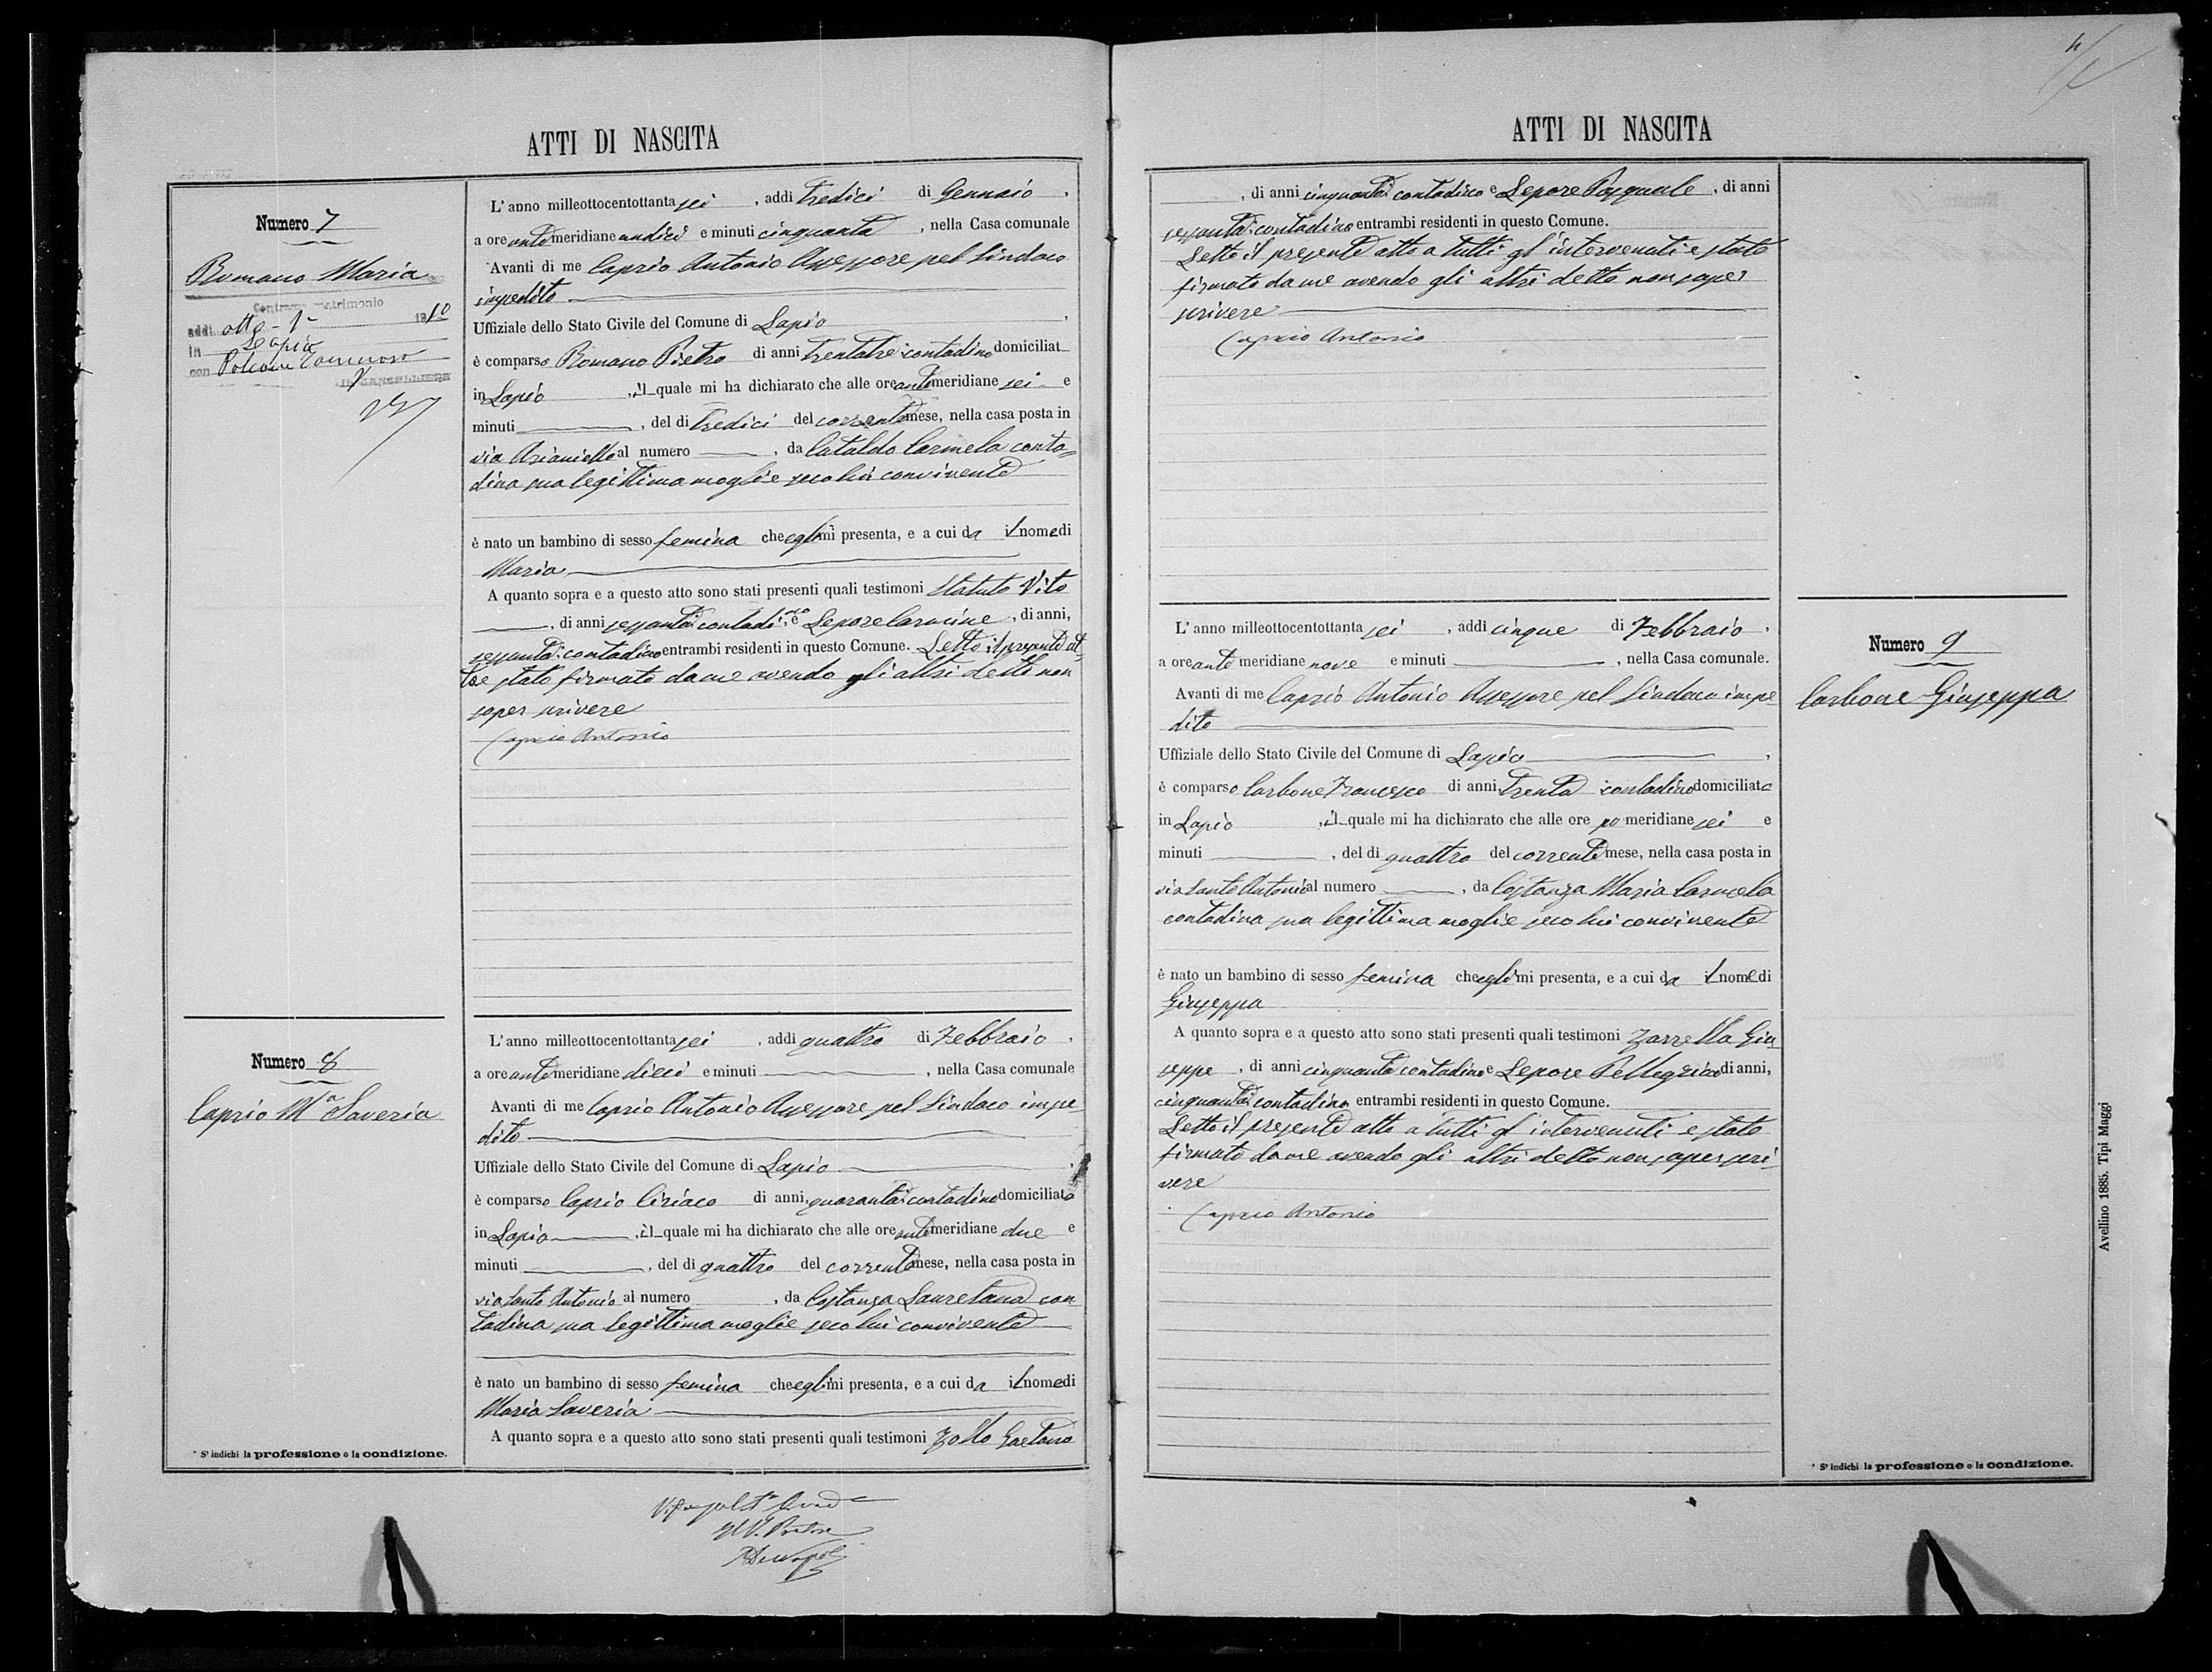 ATTI DI NASCITA
Numero 7
Romano Maria
Contrasse matrimonio
addì otto - 1 - 1910
in Lapio
con
L'anno milleottocentottanta sei, addi tredici di Gennaio,
a ore antemeridiane undici e minuti cinquanta, nella Casa comunale
Avanti di me Caprio Antonio Assessore pel Sindaco
impedito
Uffiziale dello Stato Civile del Comune di Lapio,
è comparso Romano Pietro di anni trentatre contadino domiciliat
in Lapio, il quale mi ha dichiarato che alle ore antemeridiane sei e
minuti, del dì tredici del corrente mese, nella casa posta in
via Arianiello al numero, da Cataldo Carmela conta=
dina sua legittima moglie seco lui convivente
è nato un bambino di sesso femina che egli mi presenta, e a cui da il nome di
Maria
A quanto sopra e a questo atto sono stati presenti quali testimoni Statuto Vito
, di anni sessanta contadino, e Lepore Carmine, di anni,
sessanta contadino entrambi residenti in questo Comune. Letto il presente at-
to e stato firmato da me avendo gli altri detto non
saper scrivere
Caprio Antonio
Numero 8
Caprio Mª Saveria
L'anno milleottocentottanta sei, addi quattro di Febbraio,
a ore antemeridiane dieci e minuti, nella Casa comunale
Avanti di me Caprio Antonio Assessore pel Sindaco impe
dito
Uffiziale dello Stato Civile del Comune di Lapio,
è comparso Caprio Ciriaco di anni, quaranta contadino domiciliato
in Lapio, il quale mi ha dichiarato che alle ore antemeridiane due e
minuti, del dì quattro del corrente mese, nella casa posta in
via Santo Antonio al numero, da Costanza Lauretana con
tadina sua legittima moglie seco lui convivente
è nato un bambino di sesso femina che egli mi presenta, e a cui da il nome di
Maria Saveria
A quanto sopra e a questo atto sono stati presenti quali testimoni Zollo Gaetano
* S'indichi la professione o la condizione.
Il V. Pretore
ATTI DI NASCITA
, di anni cinquanta contadino e Lepore Pasquale, di anni
sessanta contadino entrambi residenti in questo Comune.
Letto il presente atto a tutti gl'intervenuti e stato
firmato da me avendo gli altri detto non saper
scrivere
Caprio Antonio
L'anno milleottocentottanta sei, addi cinque di Febbraio,
a ore ante meridiane nove e minuti, nella Casa comunale.
Avanti di me Caprio Antonio Assessore pel Sindaco impe
dito
Uffiziale dello Stato Civile del Comune di Lapio,
è comparso Carbone Francesco di anni trenta contadino domiciliato
in Lapio, il quale mi ha dichiarato che alle ore po meridiane sei e
minuti, del dì quattro del corrente mese, nella casa posta in
via Santo Antonio al numero, da Costanza Maria Carmela
contadina sua legittima moglie seco lui convivente
è nato un bambino di sesso femina che egli mi presenta, e a cui da il nome di
Giuseppa
A quanto sopra e a questo atto sono stati presenti quali testimoni Zarrella Giu
seppe, di anni cinquanta contadino e Lepore Pellegrino di anni,
cinquanta contadino entrambi residenti in questo Comune.
Letto il presente atto a tutti gl'intervenuti e stato
firmato da me avendo gli altri detto non saper scri
vere
Caprio Antonio
Numero 9
Carbone Giuseppa
* S'indichi la professione o la condizione.
Avellino 1885. Tipi Maggi